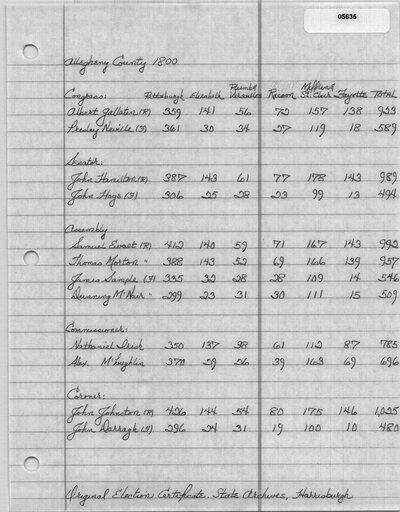 05635
Allegheny County 1800
Plumb & Mifflin &
Congress: Pittsburgh Elizabeth Versailles Racoon St. Clair Fayette Total
Albert Gallatin (R) 359 141 56 72 157 138 923
Presley Neville (F) 361 30 34 27 119 18 589
Senator:
John Hamilton (R) 387 143 61 77 178 143 989
John Hoge (F) 306 25 28 23 99 13 494
Assembly
Samuel Ewalt (R) 412 140 59 71 167 143 992
Thomas Morton " 388 143 52 69 166 139 957
James Sample (F) 335 32 28 28 109 14 546
Dunning McNair " 299 23 31 30 111 15 509
Commissioner:
Nathaniel Irish 350 137 38 61 112 87 785
Alex. 370 29 26 39 163 69 696
Coroner:
John Johnston (R) 426 144 54 80 175 146 1,025
John Darragh (F) 296 24 31 19 100 10 480
Original Election Certificate. State Archives, Harrisburgh